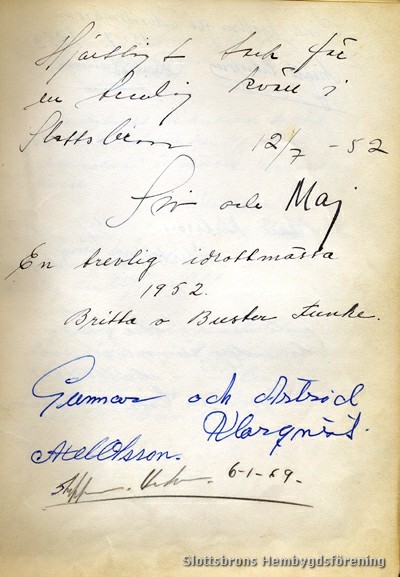 Hjärtligt tack för
en trevlig kväll i
Slottsbron 12/7 - 52
Siv och Maj
En trevlig idrottmässa
1952.
Britta o Buster Funke.
Gunnar och Astrid
Axel Olsson.
6-1-69.
Slottsbrons Hembygdsförening